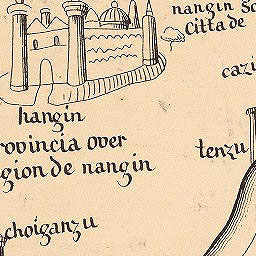 nangin
Citta de
cazi
hangin
rovincia over
gion de nangin
tenzu
choiganzu